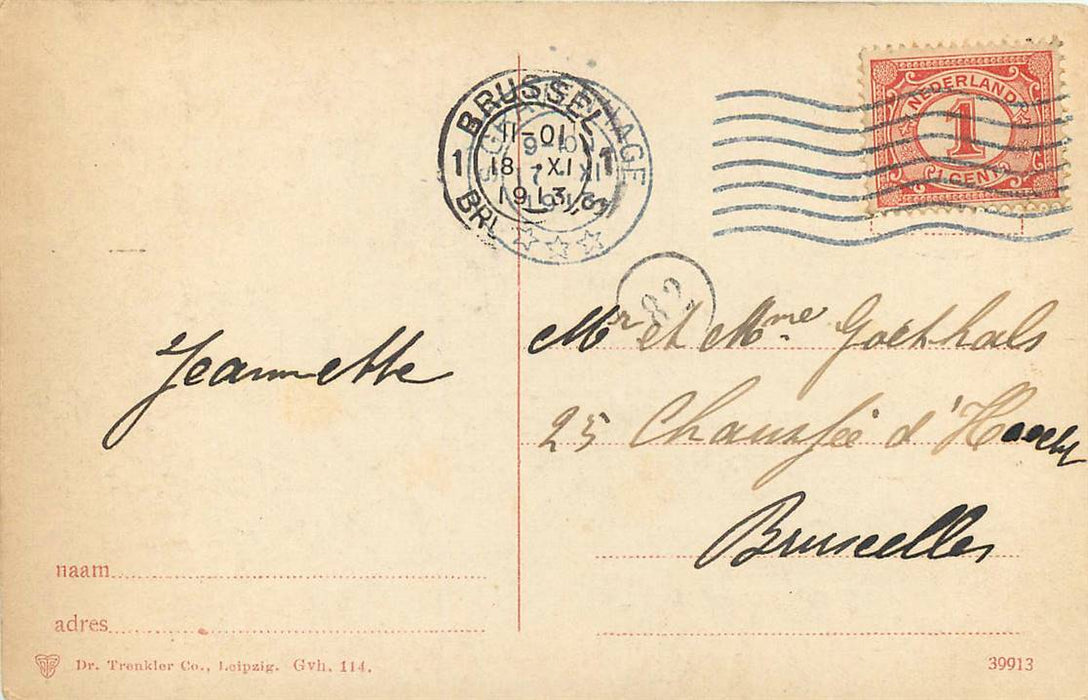 NEDERLAND
1
1 CENT
BRUSSEL
1 1
11-01
18 XI
1913
BRU
'S GRAVENHAGE
82
Mr et Mme Goethals
Jeannette
25 Chaussée d'Haecht
Bruxelles
naam
adres
Dr. Trenkler Co., Leipzig. Gvh. 114.
39913